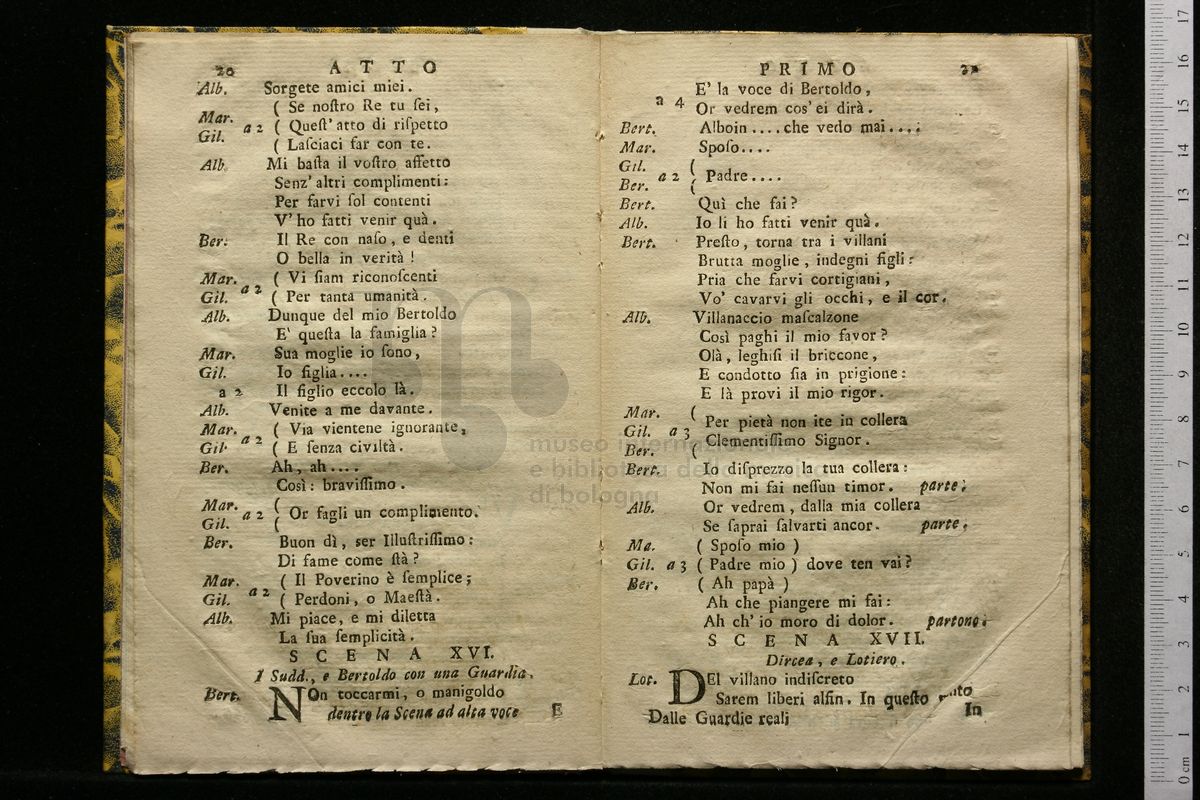 20 ATTO
Alb. Sorgete amici miei.
( Se noſtro Re tu ſei,
Mar. Gil. a 2 ( Queſt' atto di riſpetto
( Laſciaci far con te.
Alb. Mi baſta il voſtro affetto
Senz' altri complimenti:
Per farvi ſol contenti
V' ho fatti venir quà.
Ber. Il Re con naſo, e denti
O bella in verità!
Mar. ( Vi ſiam riconoſcenti
Gil. a 2 ( Per tanta umanità.
Alb. Dunque del mio Bertoldo
E' queſta la famiglia?
Mar. Sua moglie io ſono,
Gil. Io figlia....
a 2 Il figlio eccolo là.
Alb. Venite a me davante.
Mar. ( Via vientene ignorante,
Gil. a 2 ( E ſenza civiltà.
Ber. Ah, ah....
Così: braviſſimo.
Mar. Gil. a 2 ( Or fagli un complimento.
Ber. Buon dì, ser Illuſtriſſimo:
Di fame come ſtà?
Mar. ( Il Poverino è ſemplice;
Gil. a 2 ( Perdoni, o Maeſtà.
Alb. Mi piace, e mi diletta
La ſua ſemplicità.
SCENA XVI.
I Sudd., e Bertoldo con una Guardia.
Bert. NOn toccarmi, o manigoldo
dentro la Scena ad alta voce
E
PRIMO
E' la voce di Bertoldo,
a 4 Or vedrem cos' ei dirà.
Bert. Alboin....che vedo mai....
Mar. Spoſo....
Gil. Ber. a 2 ( Padre....
Bert. Quì che fai?
Alb. Io li ho fatti venir quà.
Bert. Preſto, torna tra i villani
Brutta moglie, indegni figli:
Pria che farvi cortigiani,
Vo' cavarvi gli occhi, e il cor.
Alb. Villanaccio maſcalzone
Così paghi il mio favor?
Olà, leghiſi il briccone,
E condotto ſia in prigione:
E là provi il mio rigor.
Mar. ( Per pietà non ite in collera
Gil. Ber. a 3 ( Clementiſſimo Signor.
Bert. Io diſprezzo la tua collera:
Non mi fai neſſun timor. parte.
Alb. Or vedrem, dalla mia collera
Se ſaprai ſalvarti ancor. parte.
Ma. ( Spoſo mio )
Gil. a 3 ( Padre mio ) dove ten vai?
Ber. ( Ah papà )
Ah che piangere mi fai:
Ah ch' io moro di dolor. partono.
SCENA XVII.
Dircea, e Lotiero.
Lot. DEl villano indiſcreto
Sarem liberi alfin. In queſto
Dalle Guardie reali
In
museo internazionale
e biblioteca della musica
di bologna
0 cm 1 2 3 4 5 6 7 8 9 10 11 12 13 14 15 16 17